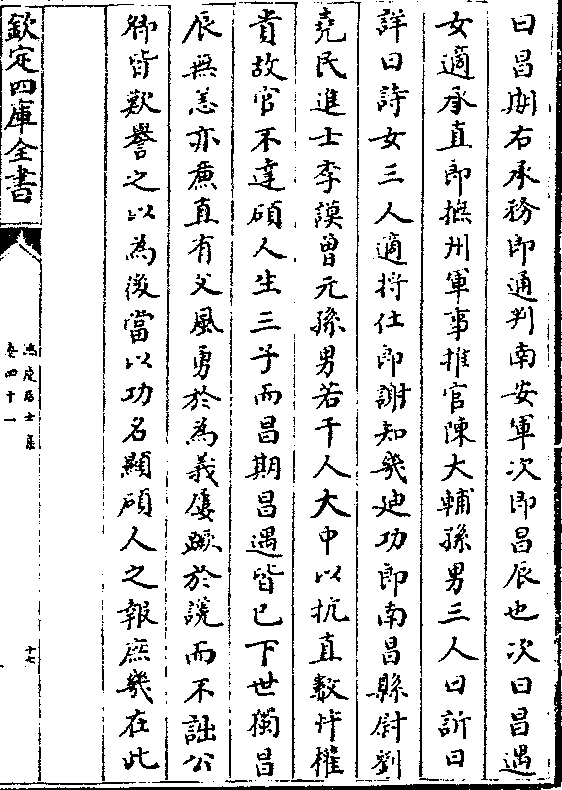 曰昌期右承務郎通判南安軍次即昌辰也次曰昌遇
女適承直郎撫州軍事推官陳大輔孫男三人曰訢曰
詳曰詩女三人適將仕郎謝知幾廸功郎南昌縣尉劉
堯民進士李謨曾元孫男若干人大中以抗直數忤權
貴故官不達碩人生三子而昌期昌遇皆已下世獨昌
辰無恙亦亷直有父風勇於為義屢蹶於讒而不詘公
卿皆歎譽之以為後當以功名顯碩人之報庶幾在此
欽定四庫全書
鴻慶居士集
卷四十一
十七